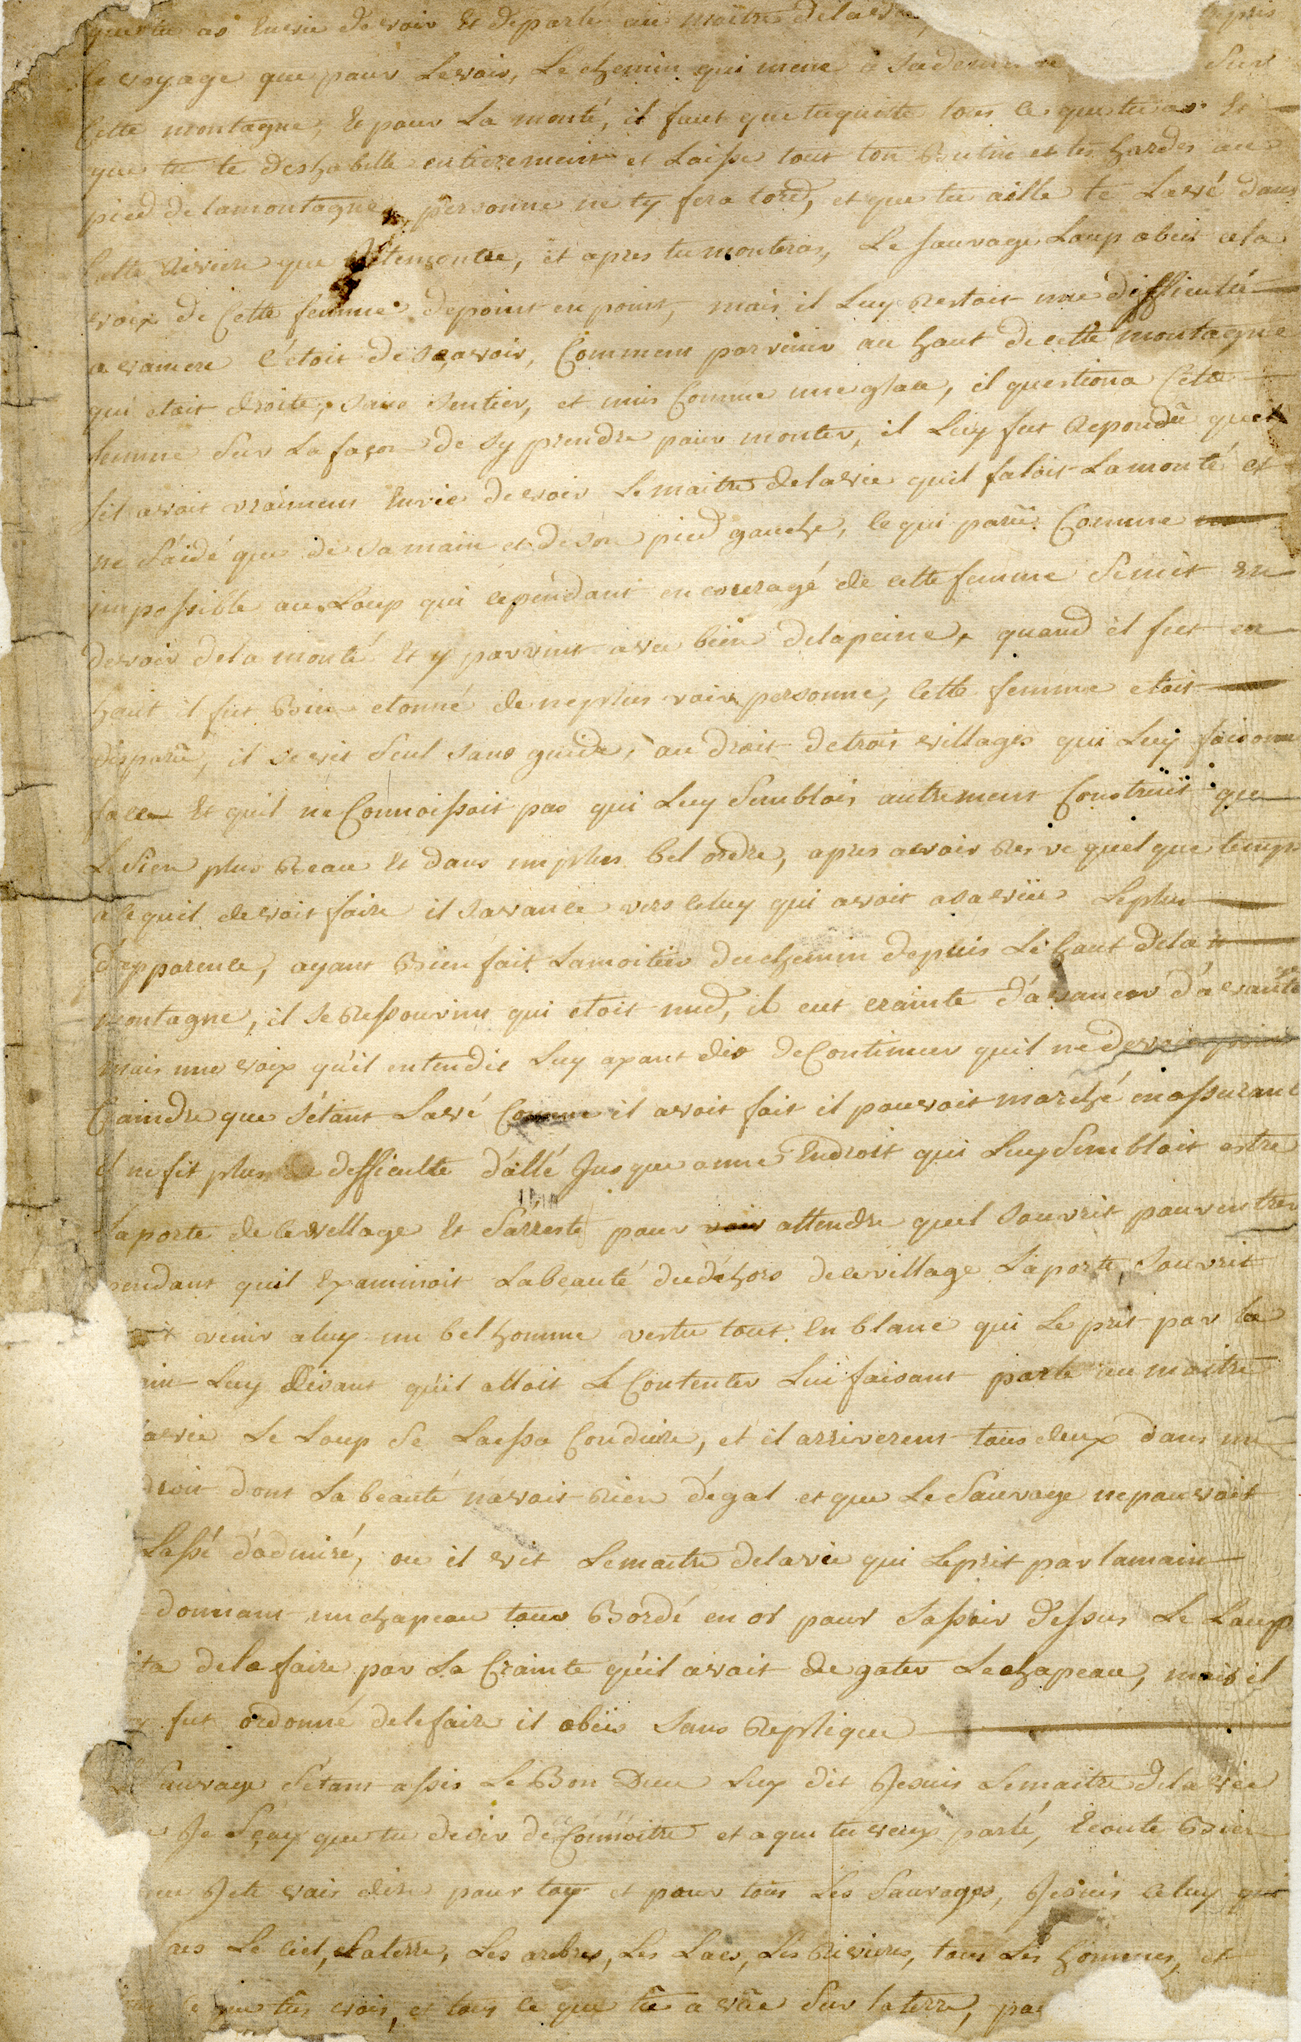 que tu as Envie de voir Et de parlé au maitre de la
le voyage que pour Le voir, Le chemin qui mene a sa demeure Sur
Cette montagne, Et pour La monté, il faut que tu quitte tous ce que tu as Et
que tu te deshabille entierement et Laisse tout ton Butin et tes hardes au
pied de la montagne, personne ne ty fera tord, et que tu aille te Lavé dans
Cette Riviere que Je te montre, et apres tu monteras, Le Sauvage Loup obeit a la
voix de Cette femme de point en point, mais il Luy Restoit une difficulté
a vaincre C'etoit de sçavoir, Comment parvenir au haut de cette montagne
qui etoit droite, sans sentier, et unis Comme une glace, il questiona Cette
femme Sur La façon de sy prendre pour monter, il Luy fut Repondû que
s'il avoit vraiment Envie de voir Le maitre de la vie quil faloit La monté et
ne S'aidé que de sa main et de son pied gauche, ce qui parû Comme
impossible au Loup qui cependant encouragé de cette femme Se mit En
devoir de la monté Et y parvint avec bien de la peine, quand il fut en
haut il fut Bien etonné de ne plus voir personne, Cette femme etoit
disparû, il se vit Seul sans guide, au droit de trois villages qui Luy faisoient
face Et quil ne Connoissoit pas qui Luy Sembloit autrement Construit que
Le Sien plus Beau Et dans un plus bel ordre, apres avoir Resvé quelque temps
a ce quil devoit faire il s'avance vers celuy qui avoit a sa vüe Le plus
d'apparence, ayant Bien fait La moitiee du chemin depuis Le haut de la
montagne, il se Ressouvint qui etoit nud, il eut crainte d'avancer d'avantage
mais une voix qu'il entendit Luy ayant dis de Continuer quil ne devoit point
Craindre que s'étant Lavé Comme il avoit fait il pouvoit marché en assurance
il ne fit plus de difficulté d'allé Jusque a une Endroit qui Luy Sembloit estre
La porte de ce village Et S'arresta pour attendre quel s'ouvrit pour entrer
pendant quil Examinoit La beauté du dehors de ce village La porte, souvrit
venir a luy un bel homme vestu tout En blanc qui Le prit par la
Luy disant qu'il alloit Le Contenter Lui faisant parlé au maitre
Le Loup Se Laissa Conduire, et il arriverent tous deux dans un
dont La beauté n'avoit Rien d'egal et que Le Sauvage ne pouvoit
Lassé d'admiré, ou il vit Le maitre de la vie qui Le prit par la main
donnant un chapeau tous Bordé en or pour S'assoir d'essus Le Loup
de le faire par La Crainte qu'il avoit de gater Le chapeau, mais il
fut ordonné de le faire il obeis sans Replique
Sauvage S'étant assis Le Bon Dieu Luy dit Je suis Le maitre de la vie
Je Sçay que tu desir de Connoitre et a qui tu veux parlé, Ecoute Bien
Je te vais dire pour toy et pour tous Les Sauvages, Je suis celuy qui
Le Ciel, La terre, Les arbres, Les Lacs, Les Rivieres, tous Les hommes, et
ce que tu vois, et tous ce que tu a vûe Sur la terre,